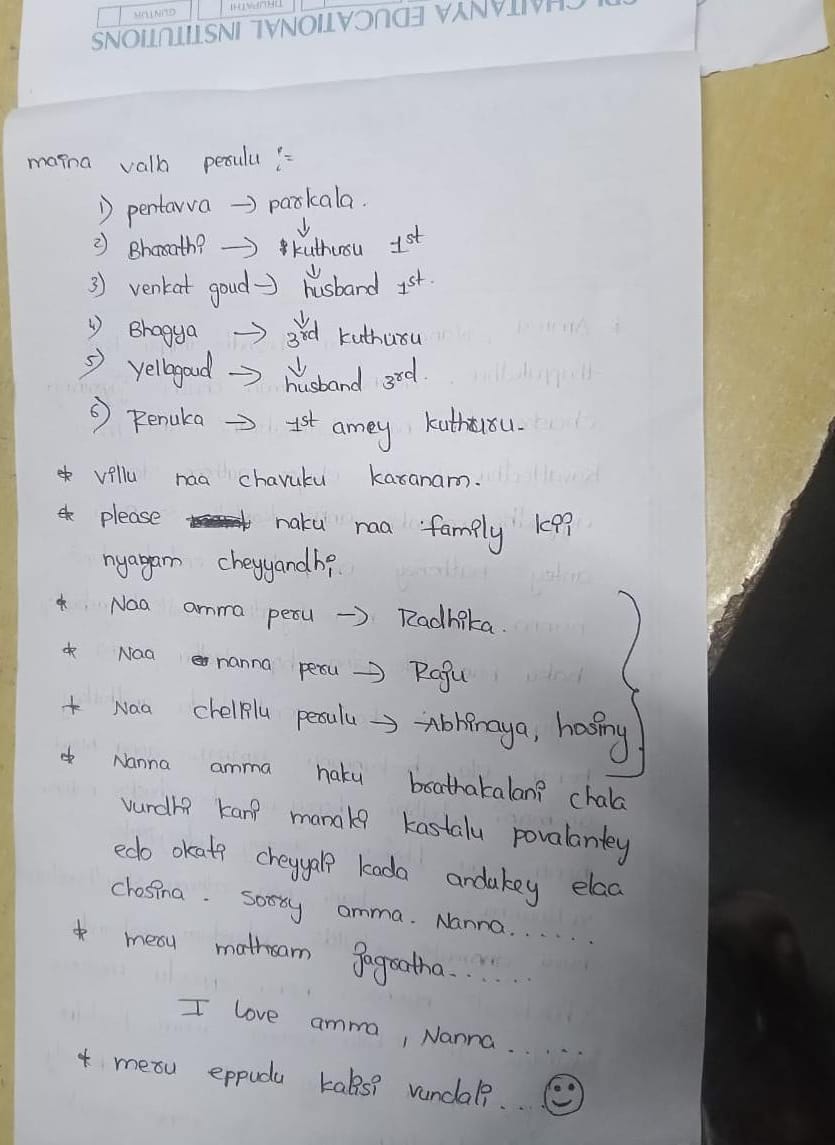 CHAITANYA EDUCATIONAL INSTITUTIONS
GUNTUR
TIRUPATHI
maina valla perulu :=
1) pentavva → parkala.
2) Bharathi → kuthuru 1st
3) venkat goud → husband 1st.
4) Bhagya → 3rd kuthuru
5) Yellagoud → husband 3rd.
6) Renuka → 1st amey kuthuru.
* villu naa chavuku karanam.
* please naku naa family ki
nyayam cheyyandhi.
* Naa amma peru → Radhika.
* Naa nanna peru → Raju
* Naa chellilu perulu → Abhinaya, hosiny
* Nanna amma naku brathakalani chala
vurdhi kani manaki kastalu povalantey
edo okati cheyyali kada andukey elaa
chosina. Sorry amma. Nanna......
* meru mathram jagratha......
I love amma, Nanna.....
* meru eppudu kalisi vundali...